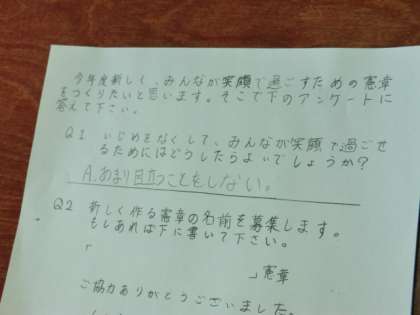 今年度新しく、みんなが笑顔で過ごすための憲章
をつくりたいと思います。そこで下のアンケートに
答えて下さい。
Q1 いじめをなくして、みんなが笑顔で過ごせ
るためにはどうしたらよいでしょうか?
A.あまり目立つことをしない。
Q2 新しく作る憲章の名前を募集します。
もしあれば下に書いて下さい。
「
」憲章
ご協力ありがとうございました。